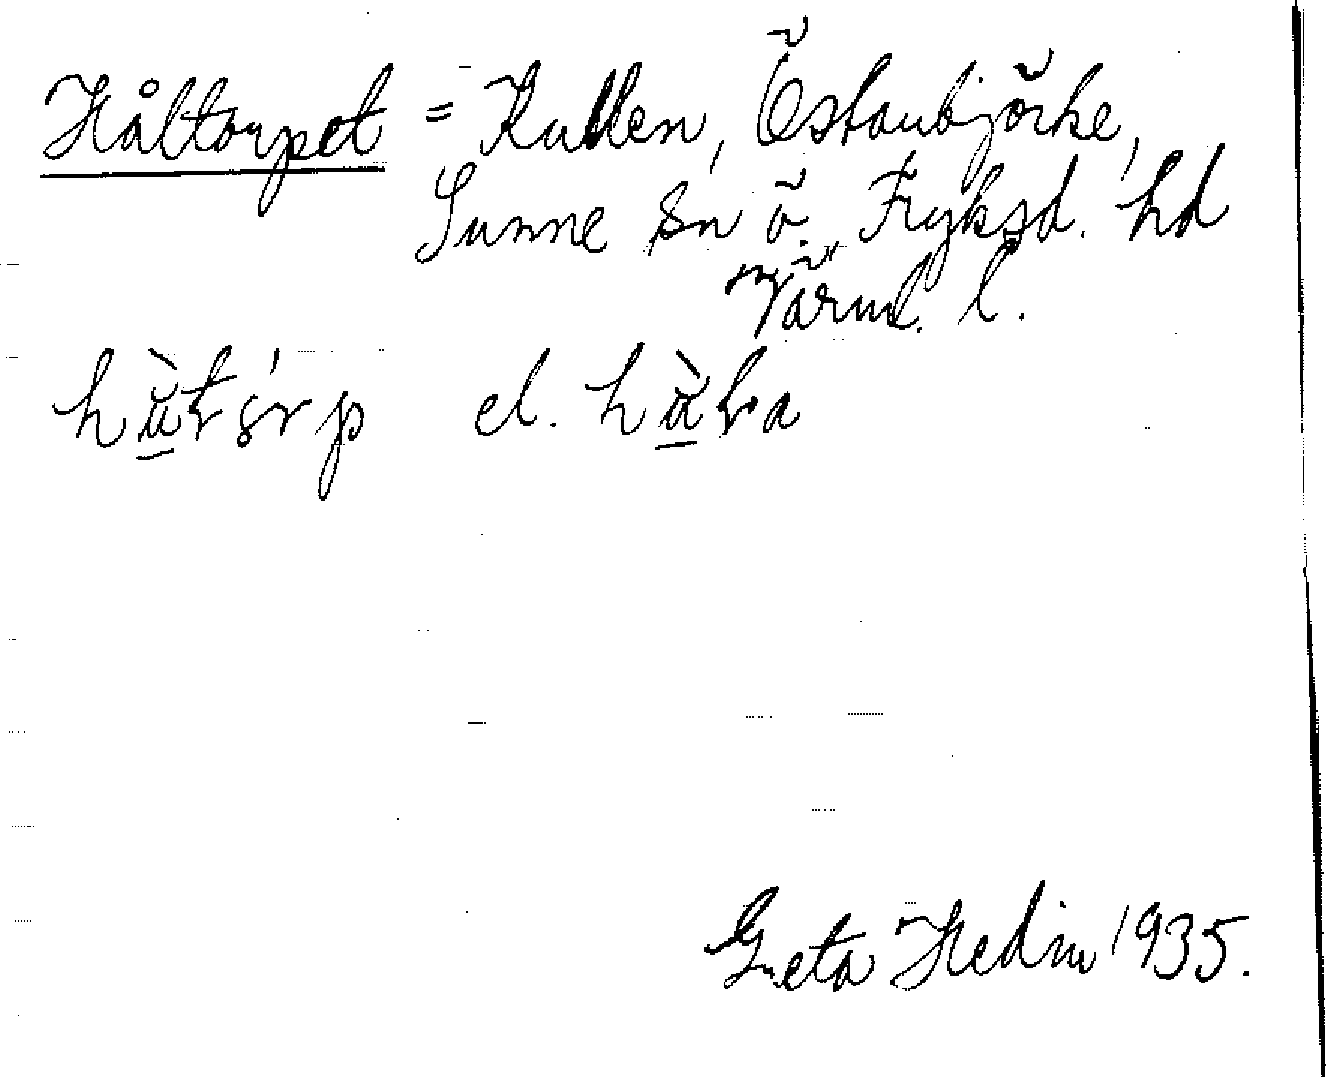 Håltorpet = Kullen, Östanbjörke,
Sunne sn Ö. Fryksd. hd
Värml. l.
el.
Greta Hedin 1935.